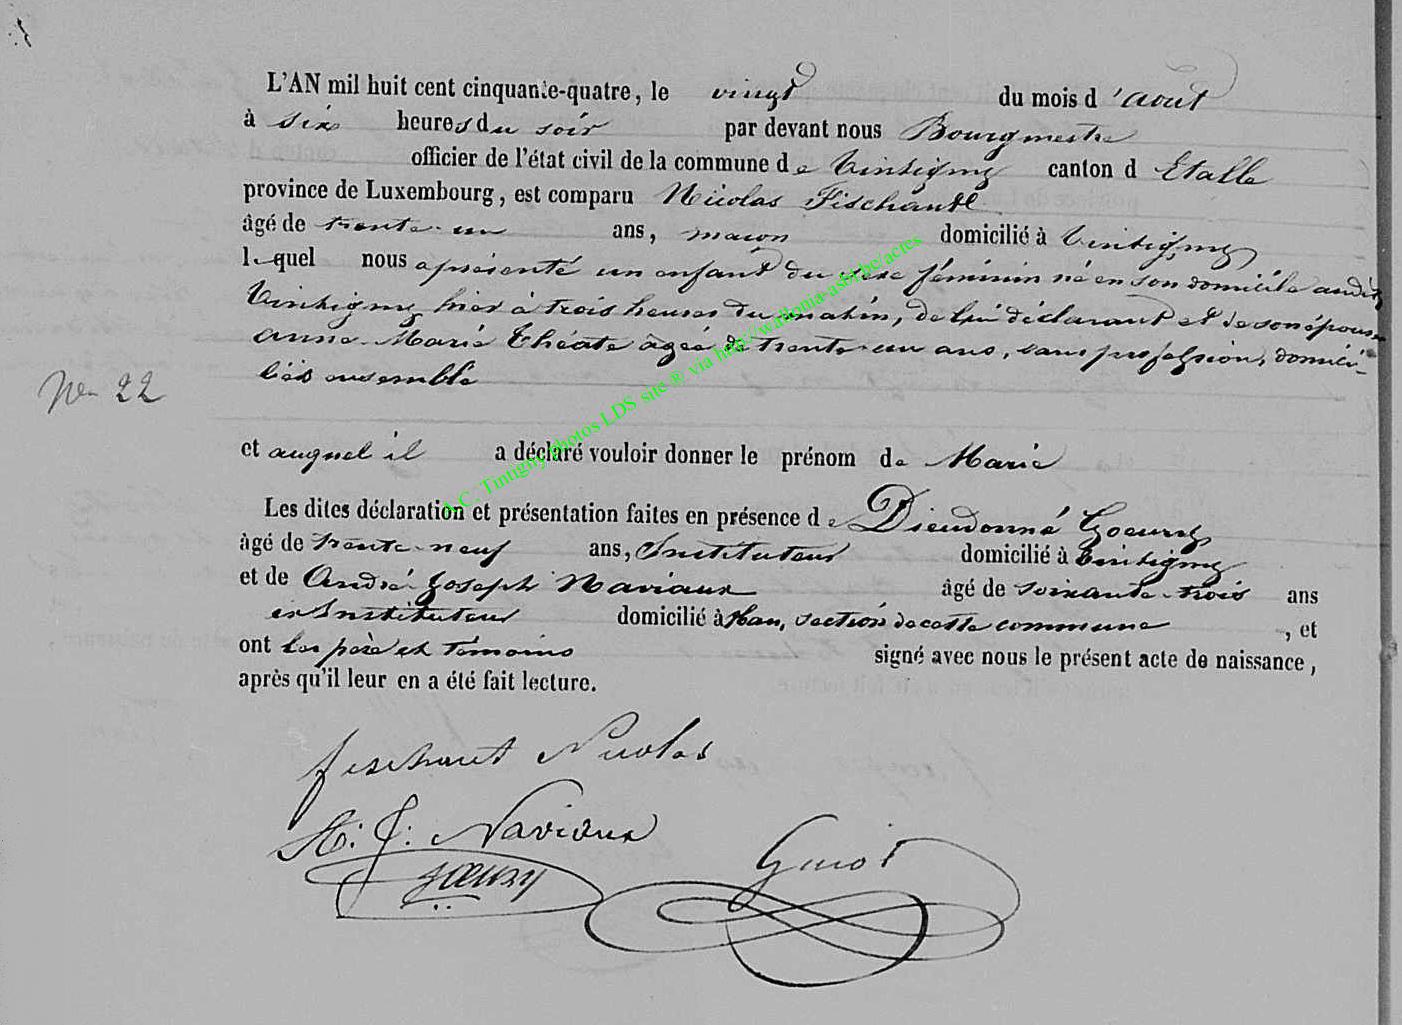 L'AN mil huit cent cinquante-quatre, le vingt du mois d'aout
à six heures du soir par devant nous Bourgmestre
officier de l'état civil de la commune de Tintigny canton d Etalle
province de Luxembourg, est comparu Nicolas Fischaut
âgé de trente-un ans, maçon domicilié à Tintigny,
lequel nous a présenté un enfant du sexe féminin né en son domicile audit
Tintigny hier à trois heures du matin, de lui déclarant et de son épouse
Anne-Marie Théate âgée de trente-un ans, sans profession, domici-
liés ensemble
No 22
et auquel il a déclaré vouloir donner le prénom de Marie
Les dites déclaration et présentation faites en présence de Dieudonné Goeury
âgé de trente-neuf ans, Instituteur domicilié à Tintigny
et de André-Joseph Naviaux âgé de soixante-trois ans
ex Instituteur domicilié à Han, section de cette commune, et
ont les père et témoins signé avec nous le présent acte de naissance,
après qu'il leur en a été fait lecture.
fischaut Nicolas
A: J: Naviaux
Goeury
Guiot
A.C. Tintigny photos LDS site ® via http://wallonia-asbl.be/actes